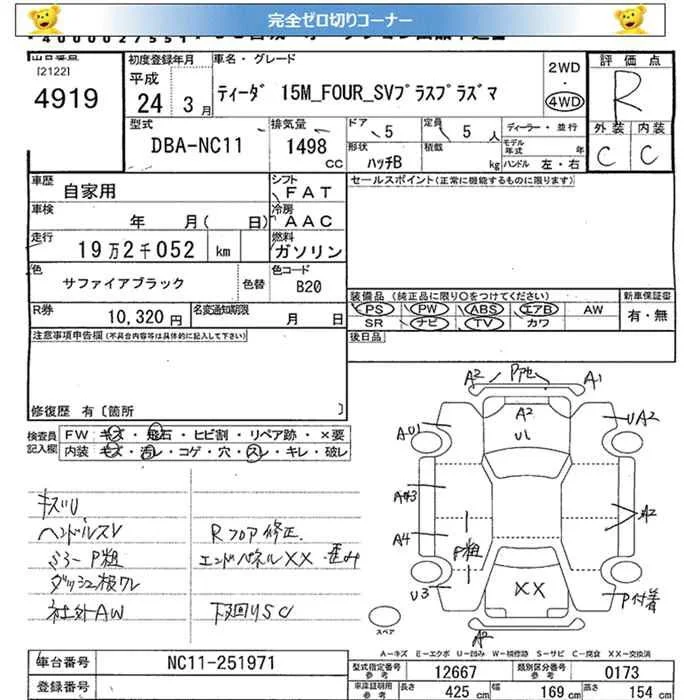 完全ゼロ切りコーナー
[2122]
4919
初度登録年月
平成
24 3月
車名・グレード
ティーダ 15M_FOUR_SVプラスプラズマ
2WD
・
4WD
評価点
R
外装 内装
C C
型式
DBA-NC11
排気量
1498
CC
ドア 5
定員 5 人
形状
ハッチB
積載 kg
ディーラー・並行
モデル年式 年
ハンドル 左・右
車歴 自家用
シフト FAT
車検 年 月( 日)
冷房 AAC
走行 19万2千052 km
燃料 ガソリン
色 サファイアブラック 色替
色コード B20
R券 10,320円
名変通知期限 月 日
セールスポイント(正常に機能するものに限ります)
装備品 (純正品に限り○をつけてください)
PS PW ABS エアB AW
SR ナビ TV カワ
新車保証書
有・無
後日品
注意事項申告欄(不具合内容等は具体的に記入して下さい)
修復歴 有〔箇所 〕
検査員記入欄
FW: キズ・飛石・ヒビ割・リペア跡・×要
内装: キズ・汚レ・コゲ・穴・スレ・キレ・破レ
キズU
ハンドルスレ
ミラーP粗
ダッシュ板ワレ
社外AW
Rフロア修正
エンドパネルXX・歪み
下廻りSC
A2 A1
A2
UL
UA2
AU1
A4
A2
P粗
U3
XX
P付着
A2
スペア
A-キズ E-エクボ U-凹み W-補修跡 S-サビ C-腐食 XX-交換済
車台番号 NC11-251971
登録番号
型式指定番号 参考 12667
類別区分番号 参考 0173
車庫証明用 参考 長さ 425 cm 幅 169 cm 高さ 154 cm